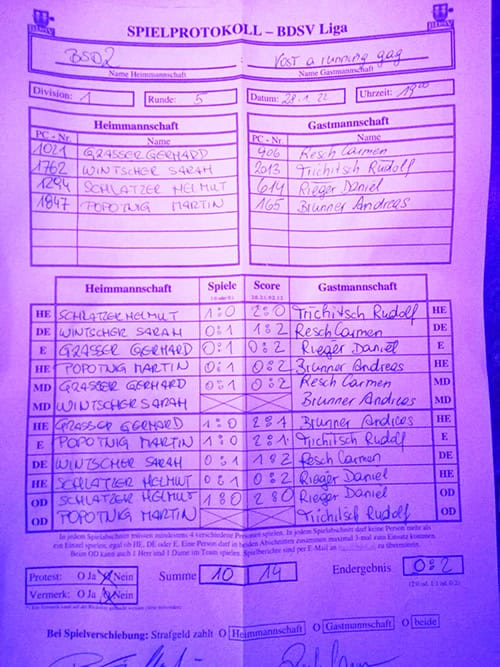 SPIELPROTOKOLL – BDSV Liga
BSD2 Vost a running gag
Name Heimmannschaft Name Gastmannschaft
Division: 1 Runde: 5 Datum: 28.1.22 Uhrzeit: 19
Heimmannschaft Gastmannschaft
PC - Nr. Name PC - Nr. Name
1021 GRASSER GERHARD 406 Resch Carmen
1762 WINTSCHER SARAH 2013 Trichitsch Rudolf
1294 SCHLATZER HELMUT 614 Rieger Daniel
1847 POPOTNIG MARTIN 165 Brunner Andreas
Heimmannschaft Spiele Score Gastmannschaft
HE SCHLATZER HELMUT 1:0 2:0 Trichitsch Rudolf HE
DE WINTSCHER SARAH 0:1 1:2 Resch Carmen DE
E GRASSER GERHARD 0:1 0:2 Rieger Daniel E
HE POPOTNIG MARTIN 0:1 0:2 Brunner Andreas HE
MD GRASSER GERHARD 0:1 0:2 Resch Carmen MD
MD WINTSCHER SARAH Brunner Andreas MD
HE GRASSER GERHARD 1:0 2:1 Brunner Andreas HE
E POPOTNIG MARTIN 1:0 2:1 Trichitsch Rudolf E
DE WINTSCHER SARAH 0:1 1:2 Resch Carmen DE
HE SCHLATZER HELMUT 0:1 0:2 Rieger Daniel HE
OD SCHLATZER HELMUT 1:0 2:0 Rieger Daniel OD
OD POPOTNIG MARTIN Trichitsch Rudolf OD
In jedem Spielabschnitt müssen mindestens 4 verschiedene Personen spielen. In jedem Spielabschnitt darf keine Person mehr als
ein Einzel spielen, egal ob HE, DE oder E. Eine Person darf in beiden Abschnitten zusammen maximal 3-mal zum Einsatz kommen.
Beim OD kann auch 1 Herr und 1 Dame im Team spielen. Spielberichte sind per E-Mail an zu übermitteln.
Protest: O Ja O Nein Summe 10 14 Endergebnis 0:2
Vermerk: O Ja O Nein (2:0 od. 1:1 od. 0:2)
Bei Spielverschiebung: Strafgeld zahlt O Heimmannschaft O Gastmannschaft O beide